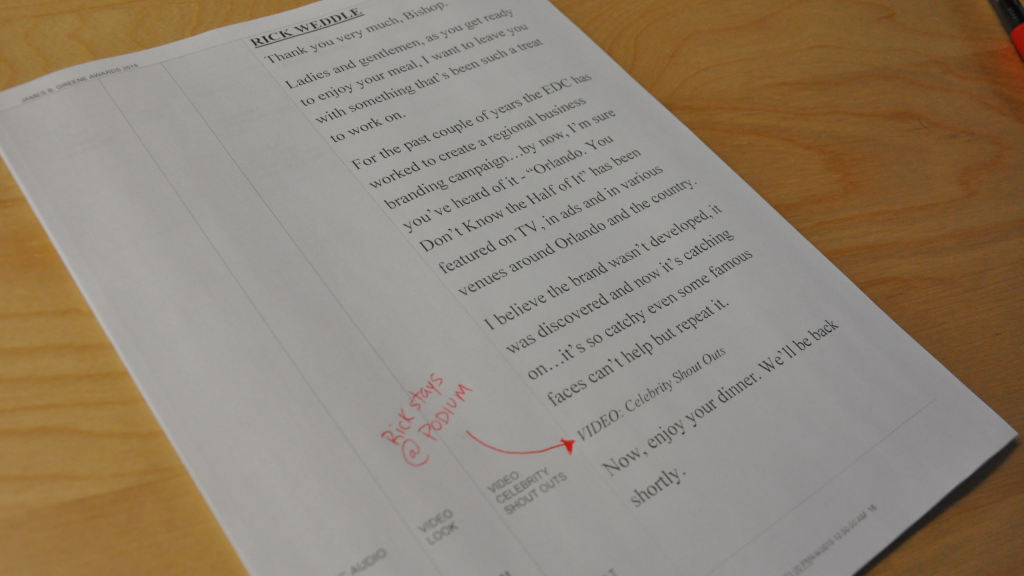 JAMES B. GREENE AWARDS 2014
RICK WEDDLE
Thank you very much, Bishop.
Ladies and gentlemen, as you get ready
to enjoy your meal, I want to leave you
with something that's been such a treat
to work on.
For the past couple of years the EDC has
worked to create a regional business
branding campaign...by now, I'm sure
you've heard of it - "Orlando. You
Don't Know the Half of It" has been
featured on TV, in ads and in various
venues around Orlando and the country.
I believe the brand wasn't developed, it
was discovered and now it's catching
on...it's so catchy even some famous
faces can't help but repeat it.
VIDEO: Celebrity Shout Outs
Now, enjoy your dinner. We'll be back
shortly.
Rick stays
@ PODIUM
VIDEO
CELEBRITY
SHOUT OUTS
VIDEO
LOOK
AUDIO
16